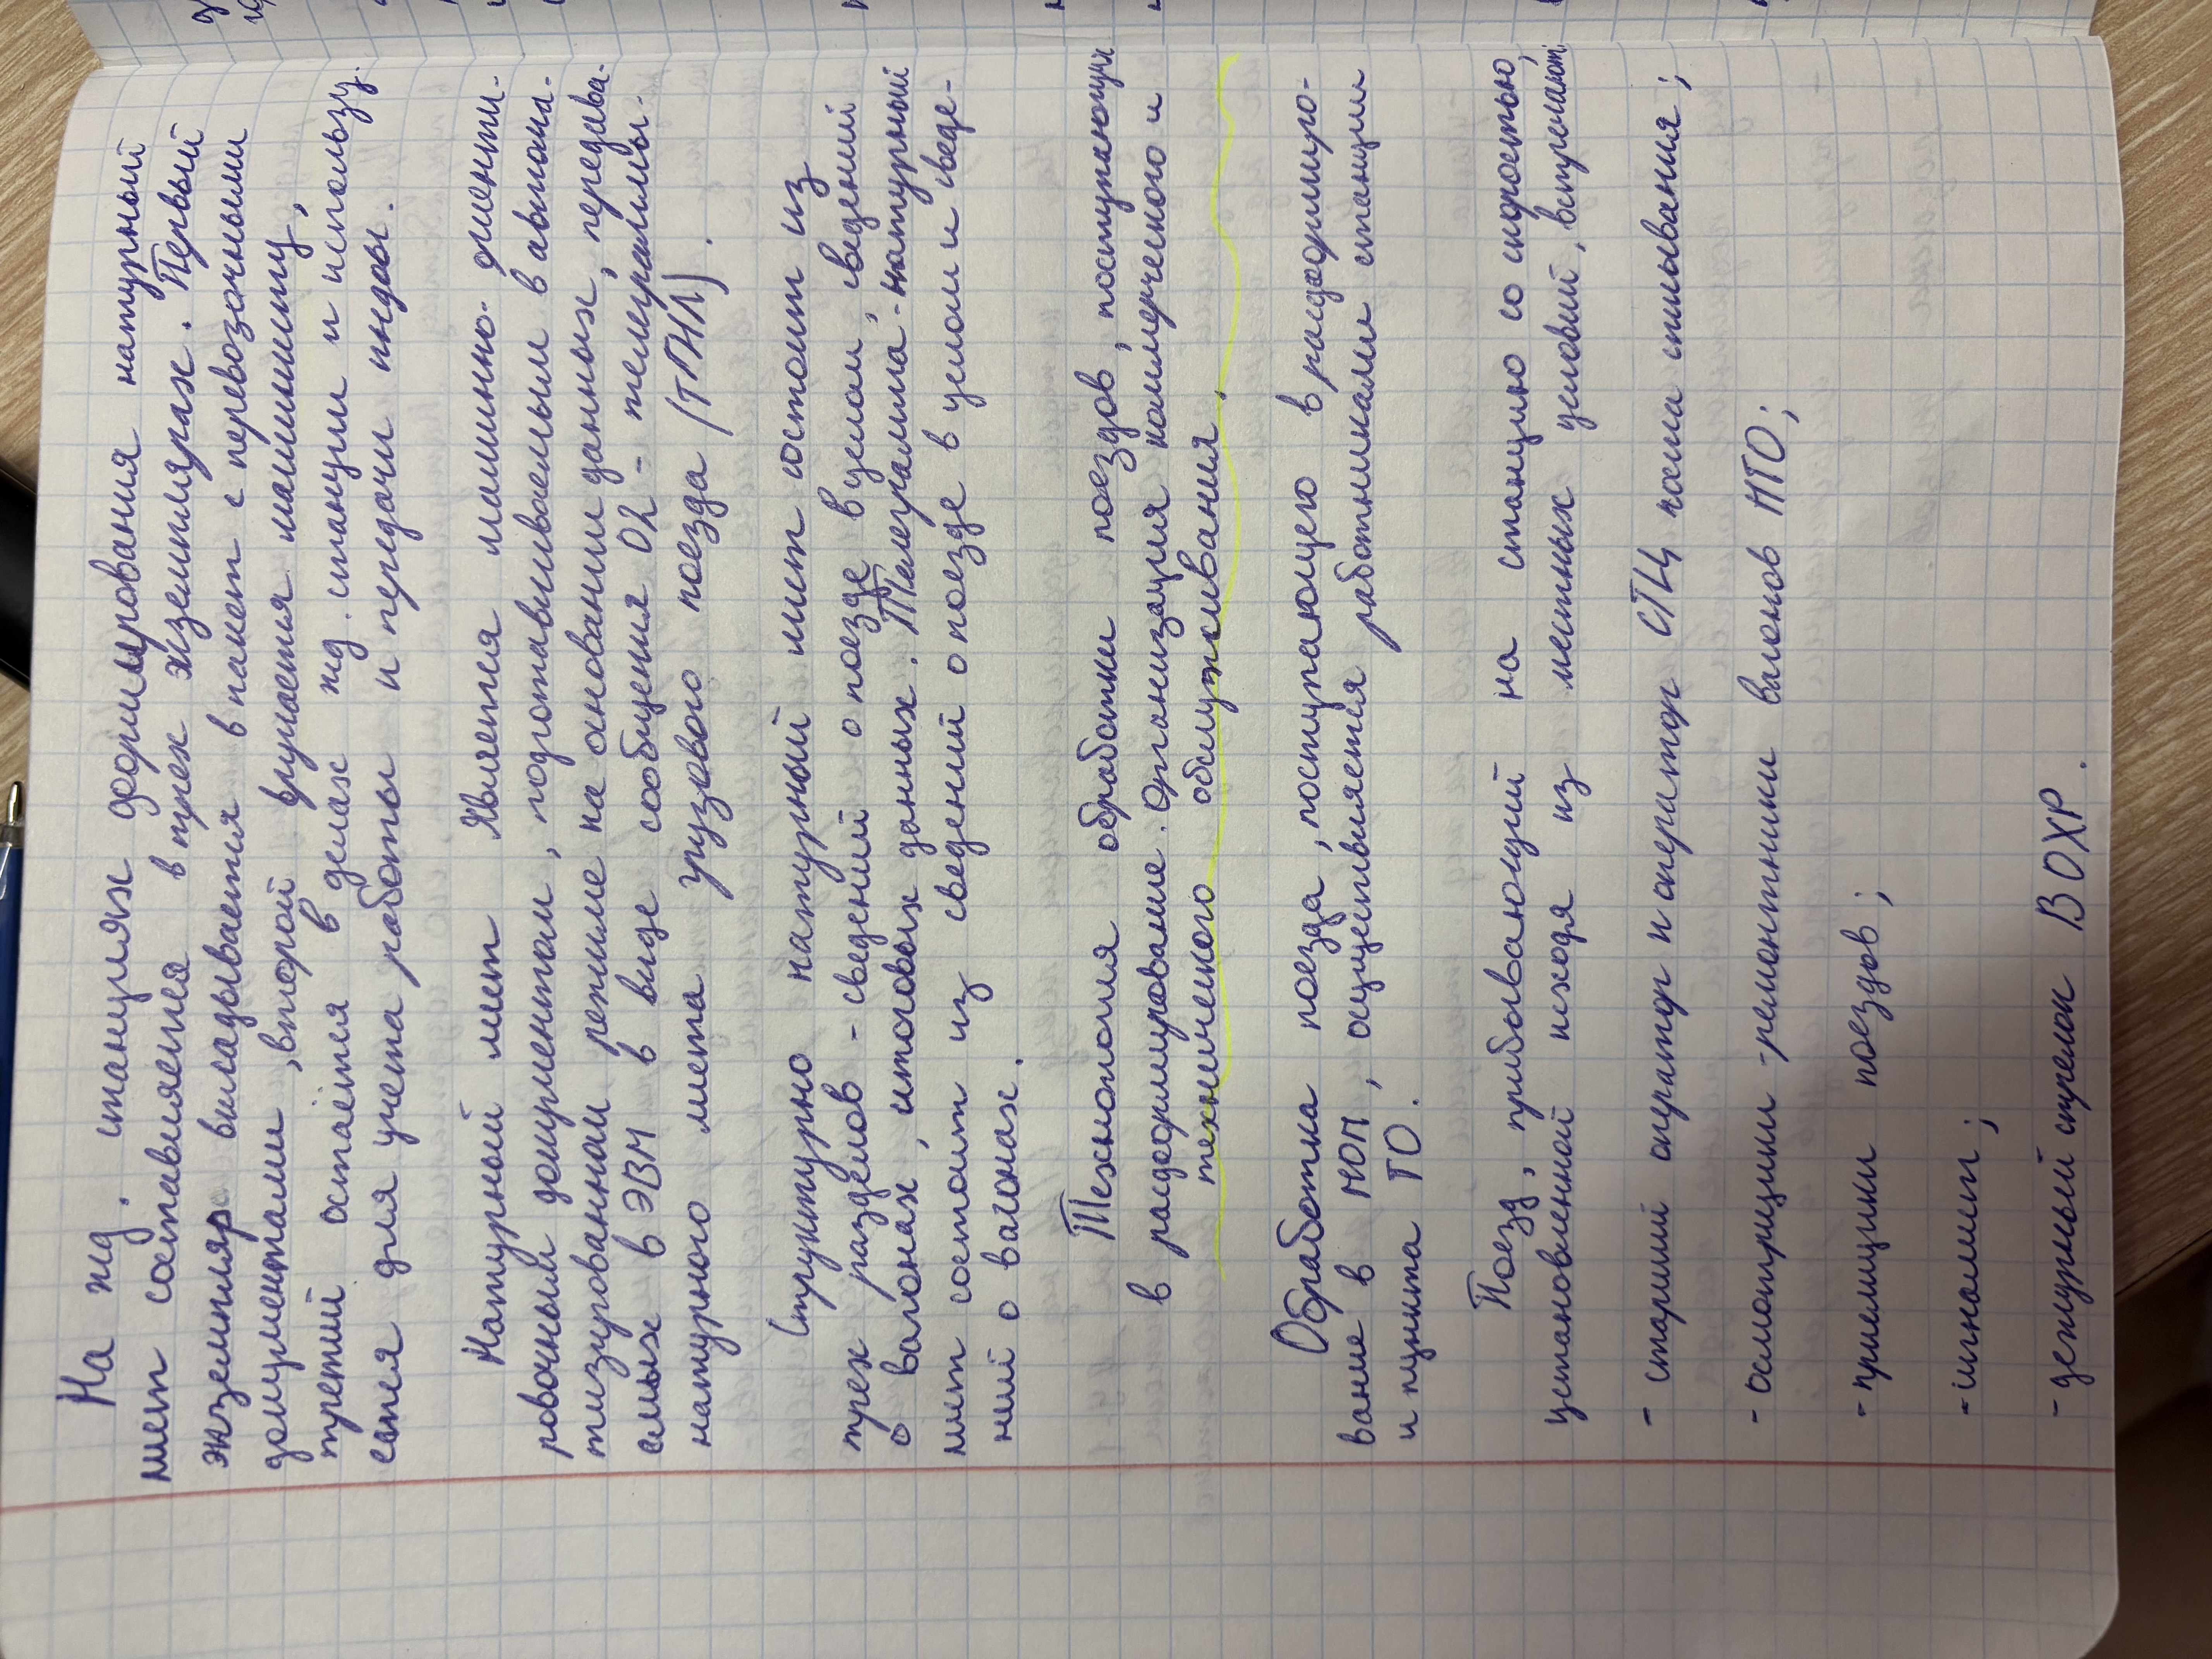 На жд. станциях формирования натурный
лист составляется в трех экземплярах. Первый
экземпляр вкладывается в пакет с перевозочными
документами, второй вручается машинисту,
третий остаётся в делах жд. станции и использу
ется для учета работы и передачи инфды.
Натурный лист является машинно- ориенти-
ровочным документом, подготавливаемым в автома-
тизированном режиме на основании данных, передава-
емых в ЭВМ в виде сообщения 02 - телеграммы-
натурного листа грузового поезда (ТГНЛ).
Структурно натурный лист состоит из
трех разделов - сведений о поезде в целом, сведений
о вагонах, итоговых данных. Телеграмма-натурный
лист состоит из сведений о поезде в целом и сведе-
ний о вагонах.
Технология обработки поездов, поступающих
в расформирование. Организация коммерческого и
технического обслуживания.
Обработка поезда, поступающего в расформиро-
вание в ПОП, осуществляется работниками станции
и пункта ТО.
Поезд, прибывающий на станцию со скоростью,
установленной исходя из местных условий, встречают:
- старший оператор и оператор СТЦ поста списывания;
- осмотрщики-ремонтники вагонов ПТО;
- приемщики поездов;
- сигналист;
- дежурный стрелок ВОХР.